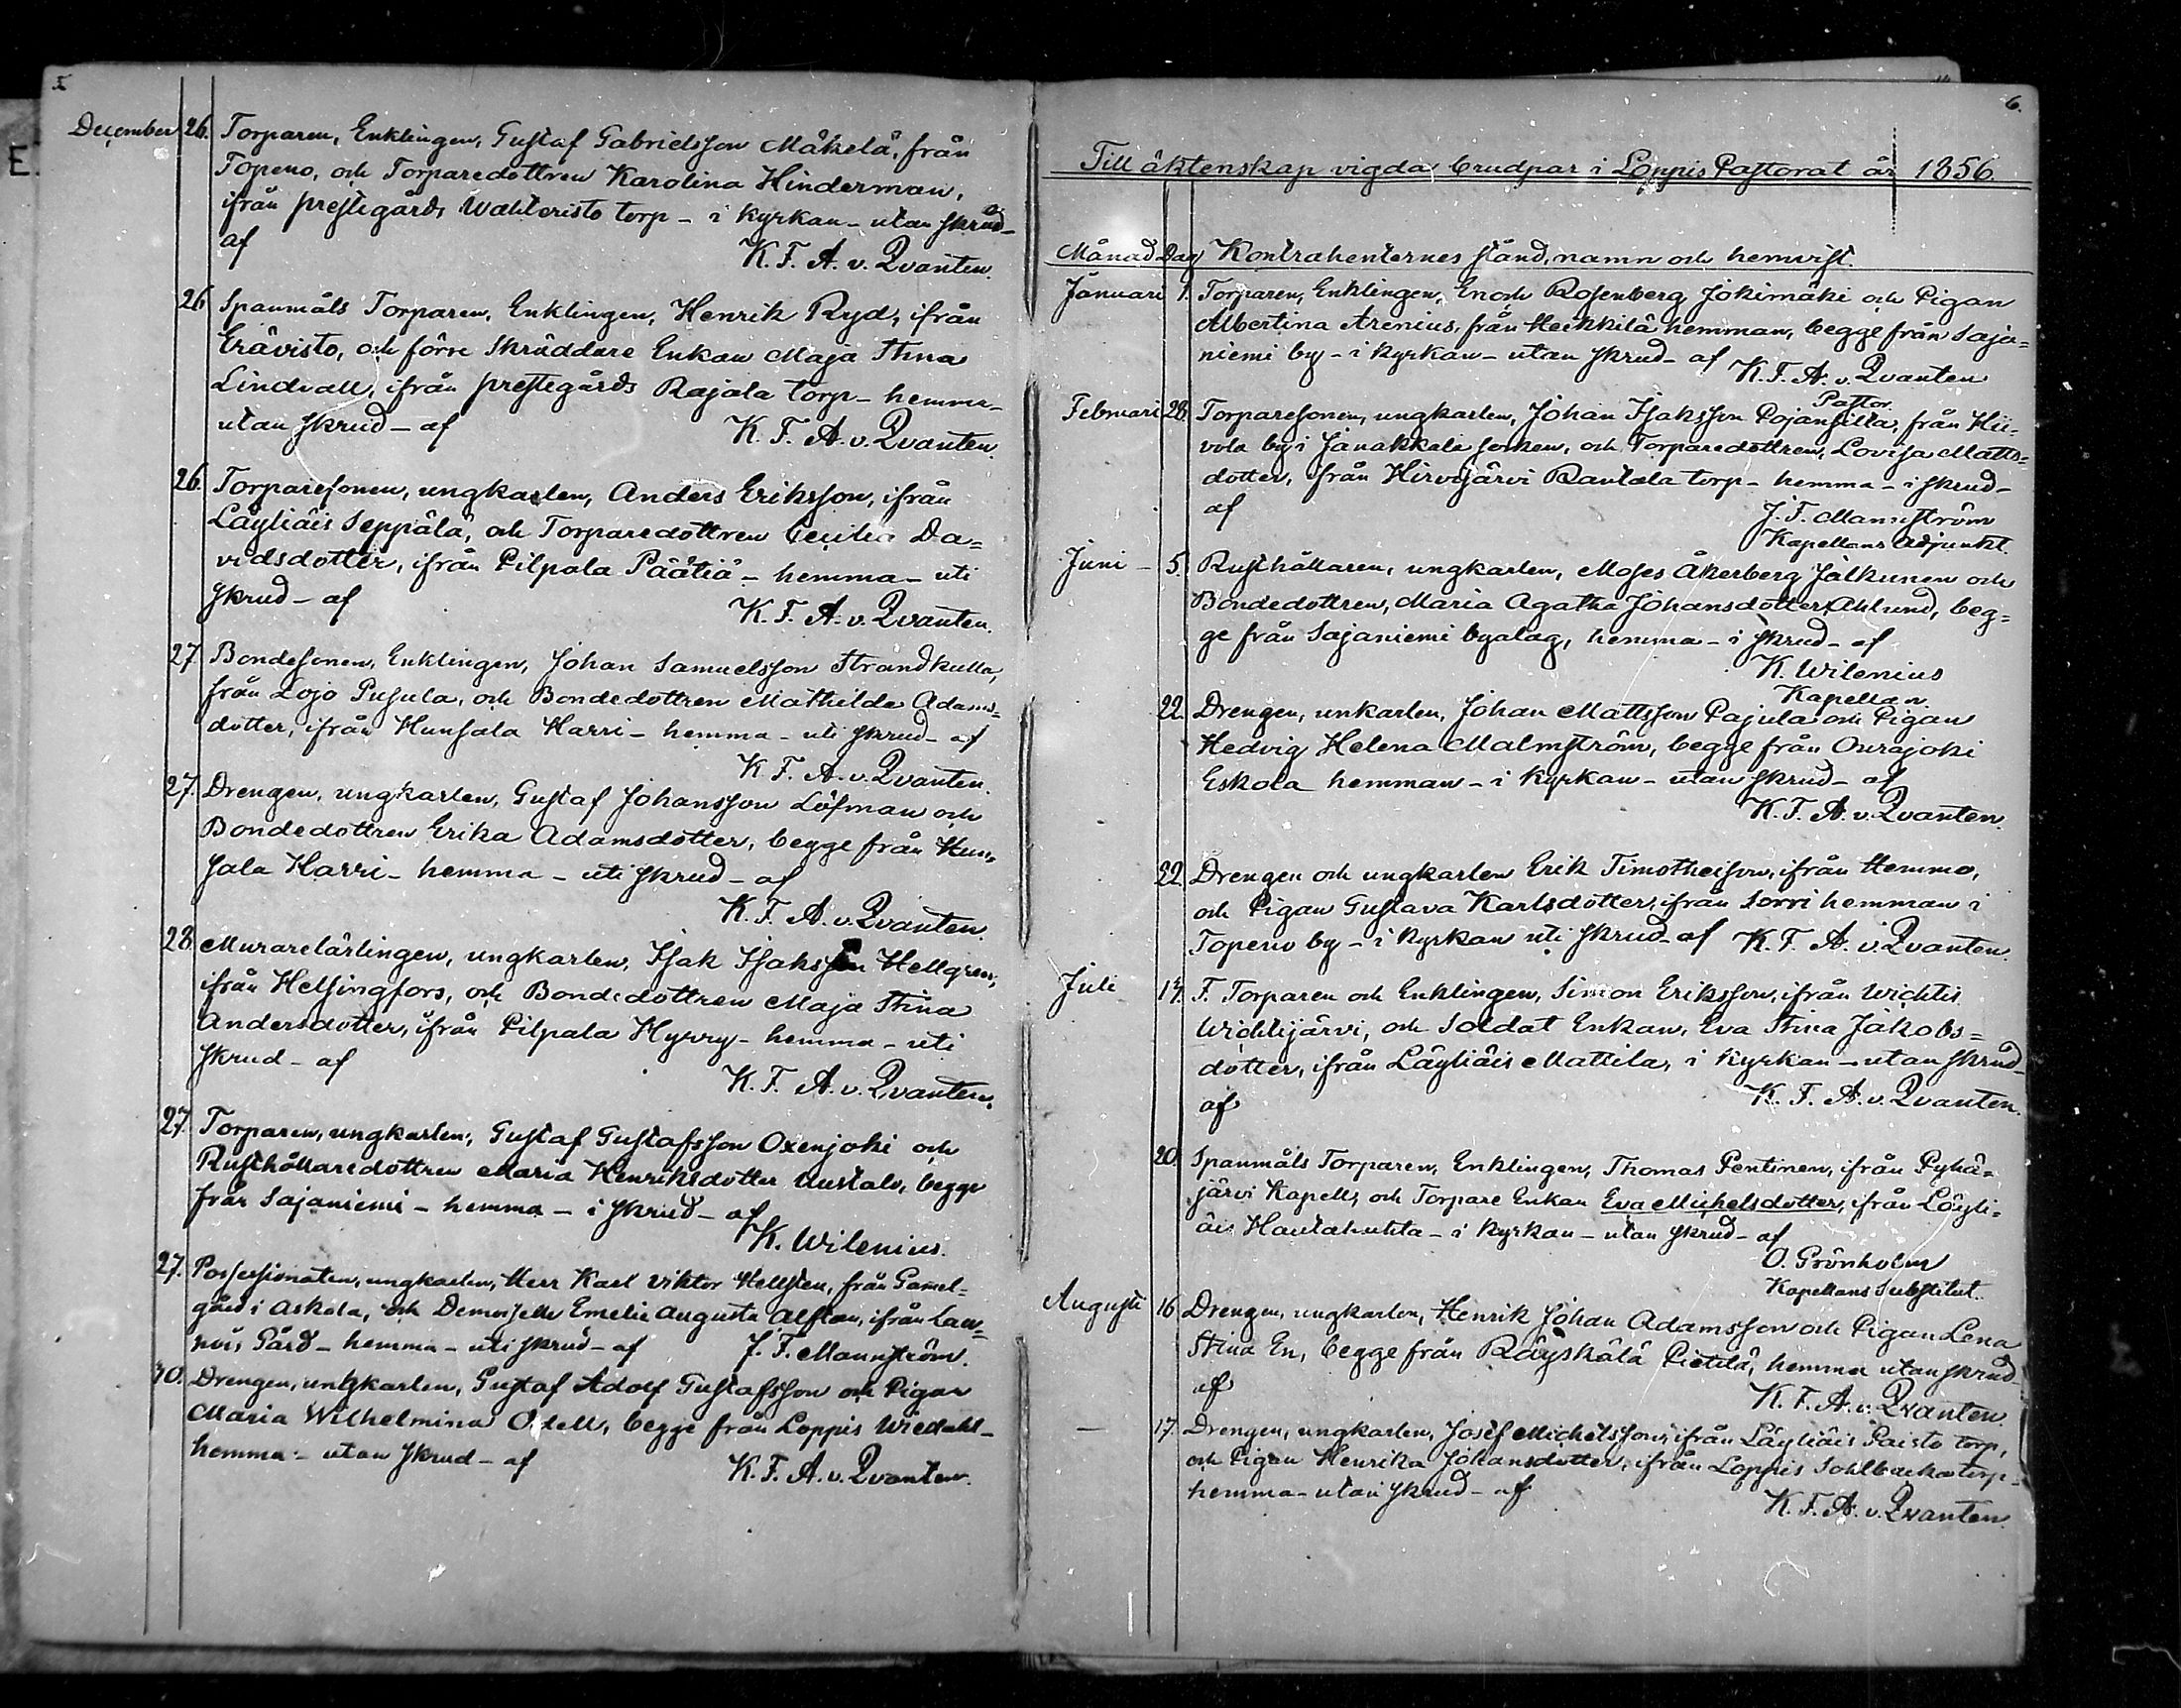 5
December 26. Torparen, Enklingen, Gustaf Gabrielsson Mäkelä, från
Topeno, och Torparedottren Karolina Hinderman,
ifrån prestegårds Wahteristo torp - i kyrkan - utan skrud -
af K. F. A. v. Qvanten.
26 Spanmåls Torparen, Enklingen, Henrik Ryd, ifrån
Erävisto, och förre Skräddare Enkan Maja Stina
Lindvall, ifrån prestegårds Rajala torp - hemma -
utan skrud - af K. F. A. v. Qvanten.
26. Torparesonen, ungkarlen, Anders Eriksson, ifrån
Läyliäis Seppälä, och Torparedottren Cecilia Da=
vidsdotter, ifrån Pilpala Päätiä - hemma - uti
skrud - af K. F. A. v. Qvanten.
27. Bondesonen, Enklingen, Johan Samuelsson Strandkulla,
från Lojo Pusula, och Bondedottren Mathilda Adams=
dotter, ifrån Hunsala Harri - hemma - uti skrud - af
K. F. A. v. Qvanten.
27. Drengen, ungkarlen, Gustaf Johansson Löfman och
Bondedottren Erika Adamsdotter, begge från Hun=
sala Harri - hemma - uti skrud - af
K. F. A. v. Qvanten.
28 Murarelärlingen, ungkarlen, Isak Isaksson Hellgren,
ifrån Helsingfors, och Bondedottren Maja Stina
Andersdotter, ifrån Pilpala Hyrry - hemma - uti
skrud - af K. F. A. v. Qvanten.
27. Torparen, ungkarlen, Gustaf Gustafsson Oxenjoki och
Rusthållaredottren Maria Henriksdotter Uustalo, begge
från Sajaniemi - hemma - i skrud - af
K. Wilenius.
27. Possessionaten, ungkarlen, Herr Karl Viktor Hellsten, från Gamel=
gård i Askola, och Demoiselle Emelie Augusta Alftan, ifrån Lau=
nois Gård - hemma - uti skrud - af J. F. Mannström.
30. Drengen, ungkarlen, Gustaf Adolf Gustafsson och Pigan
Maria Wilhelmina Odell, begge från Loppis Wiedahl -
hemma - utan skrud - af K. F. A. v. Qvanten.
6.
Till äktenskap vigda brudpar i Loppis Pastorat år 1856.
Månad Dag Kontrahenternes stånd, namn och hemvist.
Januari 1. Torparen, Enklingen, Enoch Rosenberg Jokimäki och Pigan
Albertina Arenius, från Heikkilä hemman, begge från Saja=
niemi by - i kyrkan - utan skrud - af K. F. A. v. Qvanten
Pastor.
Februari 28. Torparesonen, ungkarlen, Johan Isaksson Pojansilta, från Hii=
vola by i Janakkala socken, och Torparedottren, Lovisa Matts=
dotter, från Hirvijärvi Rantala torp - hemma - i skrud -
af J. F. Mannström
Kapellans Adjunkt.
Juni - 5. Rusthållaren, ungkarlen, Moses Åkerberg Jalkunen och
Bondedottren, Maria Agatha Johansdotter Ahlund, beg=
ge från Sajaniemi byalag, hemma - i skrud - af
K. Wilenius
Kapellan.
22. Drengen, unkarlen, Johan Mattsson Pajula och Pigan
Hedvig Helena Malmström, begge från Ourajoki
Eskola hemman - i kyrkan - utan skrud - af
K. F. A. v. Qvanten.
22. Drengen och ungkarlen Erik Timotheison, ifrån Hemmo,
och Pigan Gustava Karlsdotter, ifrån Sorri hemman i
Topeno by - i kyrkan uti skrud - af K. F. A. v. Qvanten.
Juli 14. F. Torparen och Enklingen, Simon Eriksson, ifrån Wichtis
Wichtijärvi, och Soldat Enkan, Eva Stina Jakobs=
dotter, ifrån Läyliäis Mattila, i kyrkan - utan skrud -
af K. F. A. v. Qvanten.
20. Spanmåls Torparen, Enklingen, Thomas Pentinen, ifrån Pyhä=
järvi Kapell, och Torpare Enkan Eva Michelsdotter, ifrån Läyli=
äis Hautahuhta - i kyrkan - utan skrud - af
O. Grönholm
Kapellans Substitut.
Augusti 16 Drengen, ungkarlen, Henrik Johan Adamsson och Pigan Lena
Stina En, begge från Räyskälä Pietilä, hemma utan skrud -
af K. F. A. v. Qvanten
— 17. Drengen, ungkarlen, Josef Michelsson, ifrån Läyliäis Paisto torp,
och Pigan Henrika Johansdotter, ifrån Loppis Sohlbacka torp -
hemma - utan skrud - af
K. F. A. v. Qvanten.